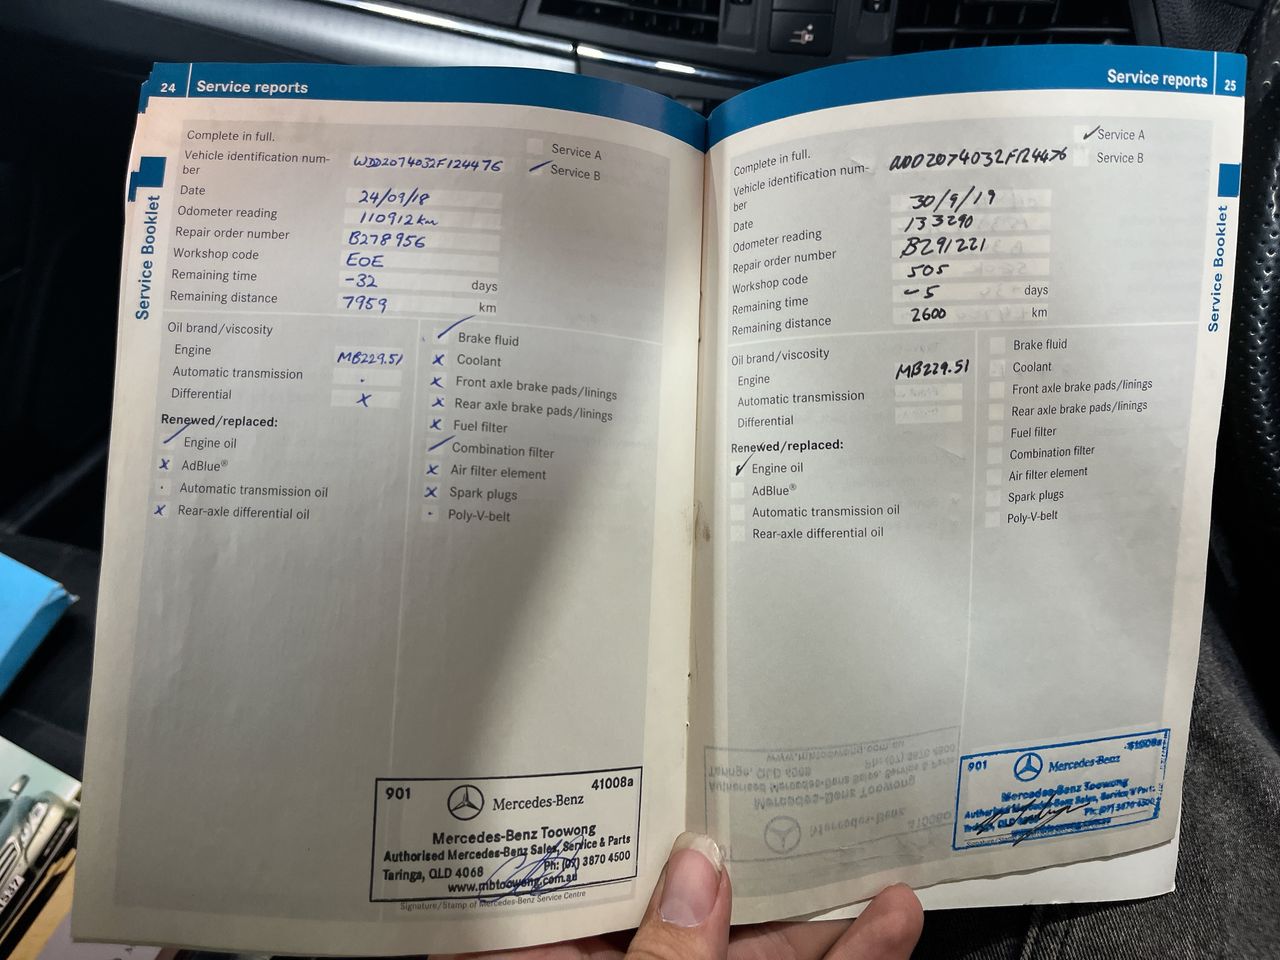 24 Service reports
Complete in full.
Service A
Vehicle identification num-
ber
WDD2074032F124476
✓ Service B
Date 24/09/18
Odometer reading 110912 km
Repair order number B278956
Workshop code EOE
Remaining time -32 days
Remaining distance 7959 km
Oil brand/viscosity
Engine MB229.51
Automatic transmission .
Differential X
Renewed/replaced:
✓ Engine oil
X AdBlue®
. Automatic transmission oil
X Rear-axle differential oil
✓ Brake fluid
X Coolant
X Front axle brake pads/linings
X Rear axle brake pads/linings
X Fuel filter
✓ Combination filter
X Air filter element
X Spark plugs
. Poly-V-belt
901 Mercedes-Benz 41008a
Mercedes-Benz Toowong
Authorised Mercedes-Benz Sales, Service & Parts
Taringa, QLD 4068 Ph: (07) 3870 4500
www.mbtoowong.com.au
Signature/Stamp of Mercedes-Benz Service Centre
Service Booklet
Service reports 25
Complete in full.
✓ Service A
Vehicle identification num-
ber
Service B
Date 30/9/19
Odometer reading 133290
Repair order number B291221
Workshop code 505
Remaining time -5 days
Remaining distance 2600 km
Oil brand/viscosity
Engine MB229.51
Automatic transmission
Differential
Renewed/replaced:
✓ Engine oil
AdBlue®
Automatic transmission oil
Rear-axle differential oil
Brake fluid
Coolant
Front axle brake pads/linings
Rear axle brake pads/linings
Fuel filter
Combination filter
Air filter element
Spark plugs
Poly-V-belt
901 Mercedes-Benz 41008a
Mercedes-Benz Toowong
Authorised Mercedes-Benz Sales, Service & Parts
Taringa, QLD 4068 Ph: (07) 3870 4500
Service Booklet